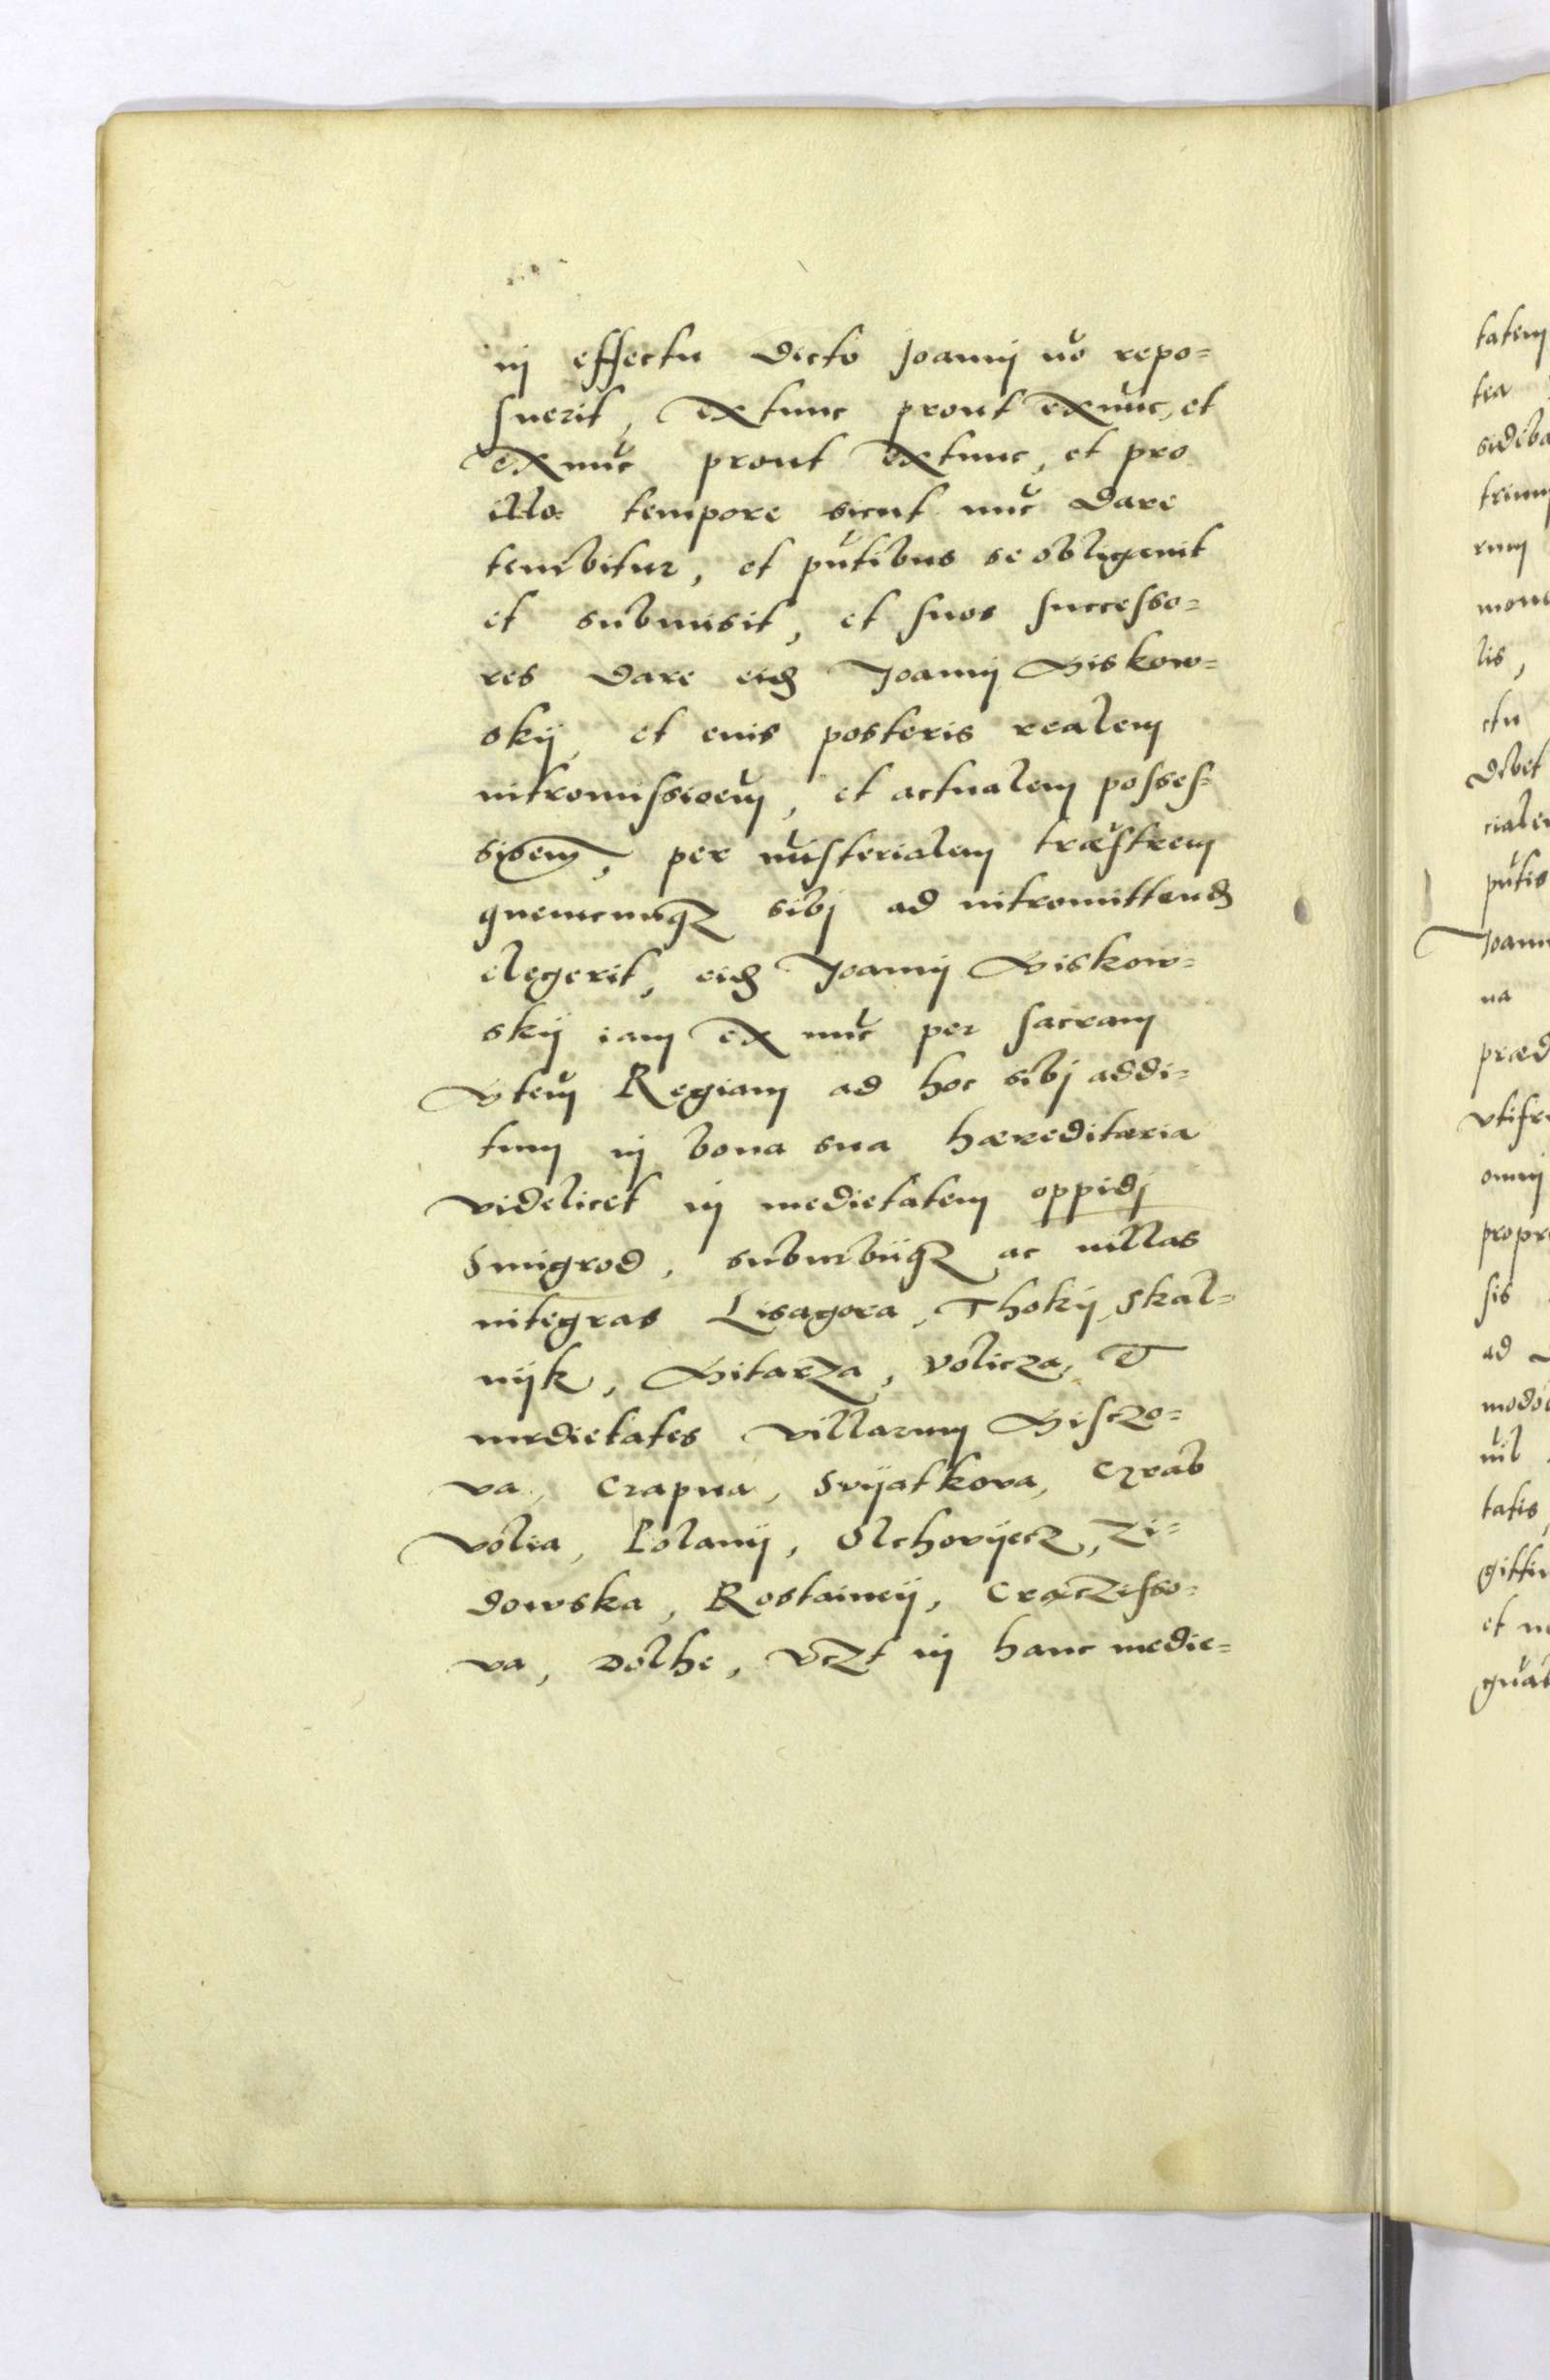 in effectu dicto Joanni nō repo=
suerit, extunc prout exnūc, et
exnūc prout extunc, et pro
illo tempore sicut nūc dare
tenebitur, et pn̄tibus se obligauit
et submisit, et suos successo=
res dare eid Joanni Siskow=
skij, et euis posteris realem
intromissioēm, et actualem posses=
sioem, per mīsterialem
quemcunq sibj ad intromittend
elegerit, eid Joanni Siskow=
skij iam ex nūc per sacram
Mtēm Regiam ad hoc sibj addi=
tum in bona sua haereditaria
videlicet in medietatem oppidj
Smigrod, suburbijq ac villas
integras Lisagora, Thokij, Skal=
nijk, Sitarza, Volicza, et
medietates villarum Sisczo=
va, Crapna, Svijatkova, Czrab
Volia, Polanij, Olchovijecz, Zi=
dowska, Rostaineij, Craczisso=
va, Dolhe, vczt in hanc medie=
tatem
tea
sideba
trium
rum
mone
lis,
ctu
debet
cialem
pn̄tis
Joann
na
praed
vtifr
omnj
propr
sis
ad
modo
nīl
tatis,
gittim
et
quab